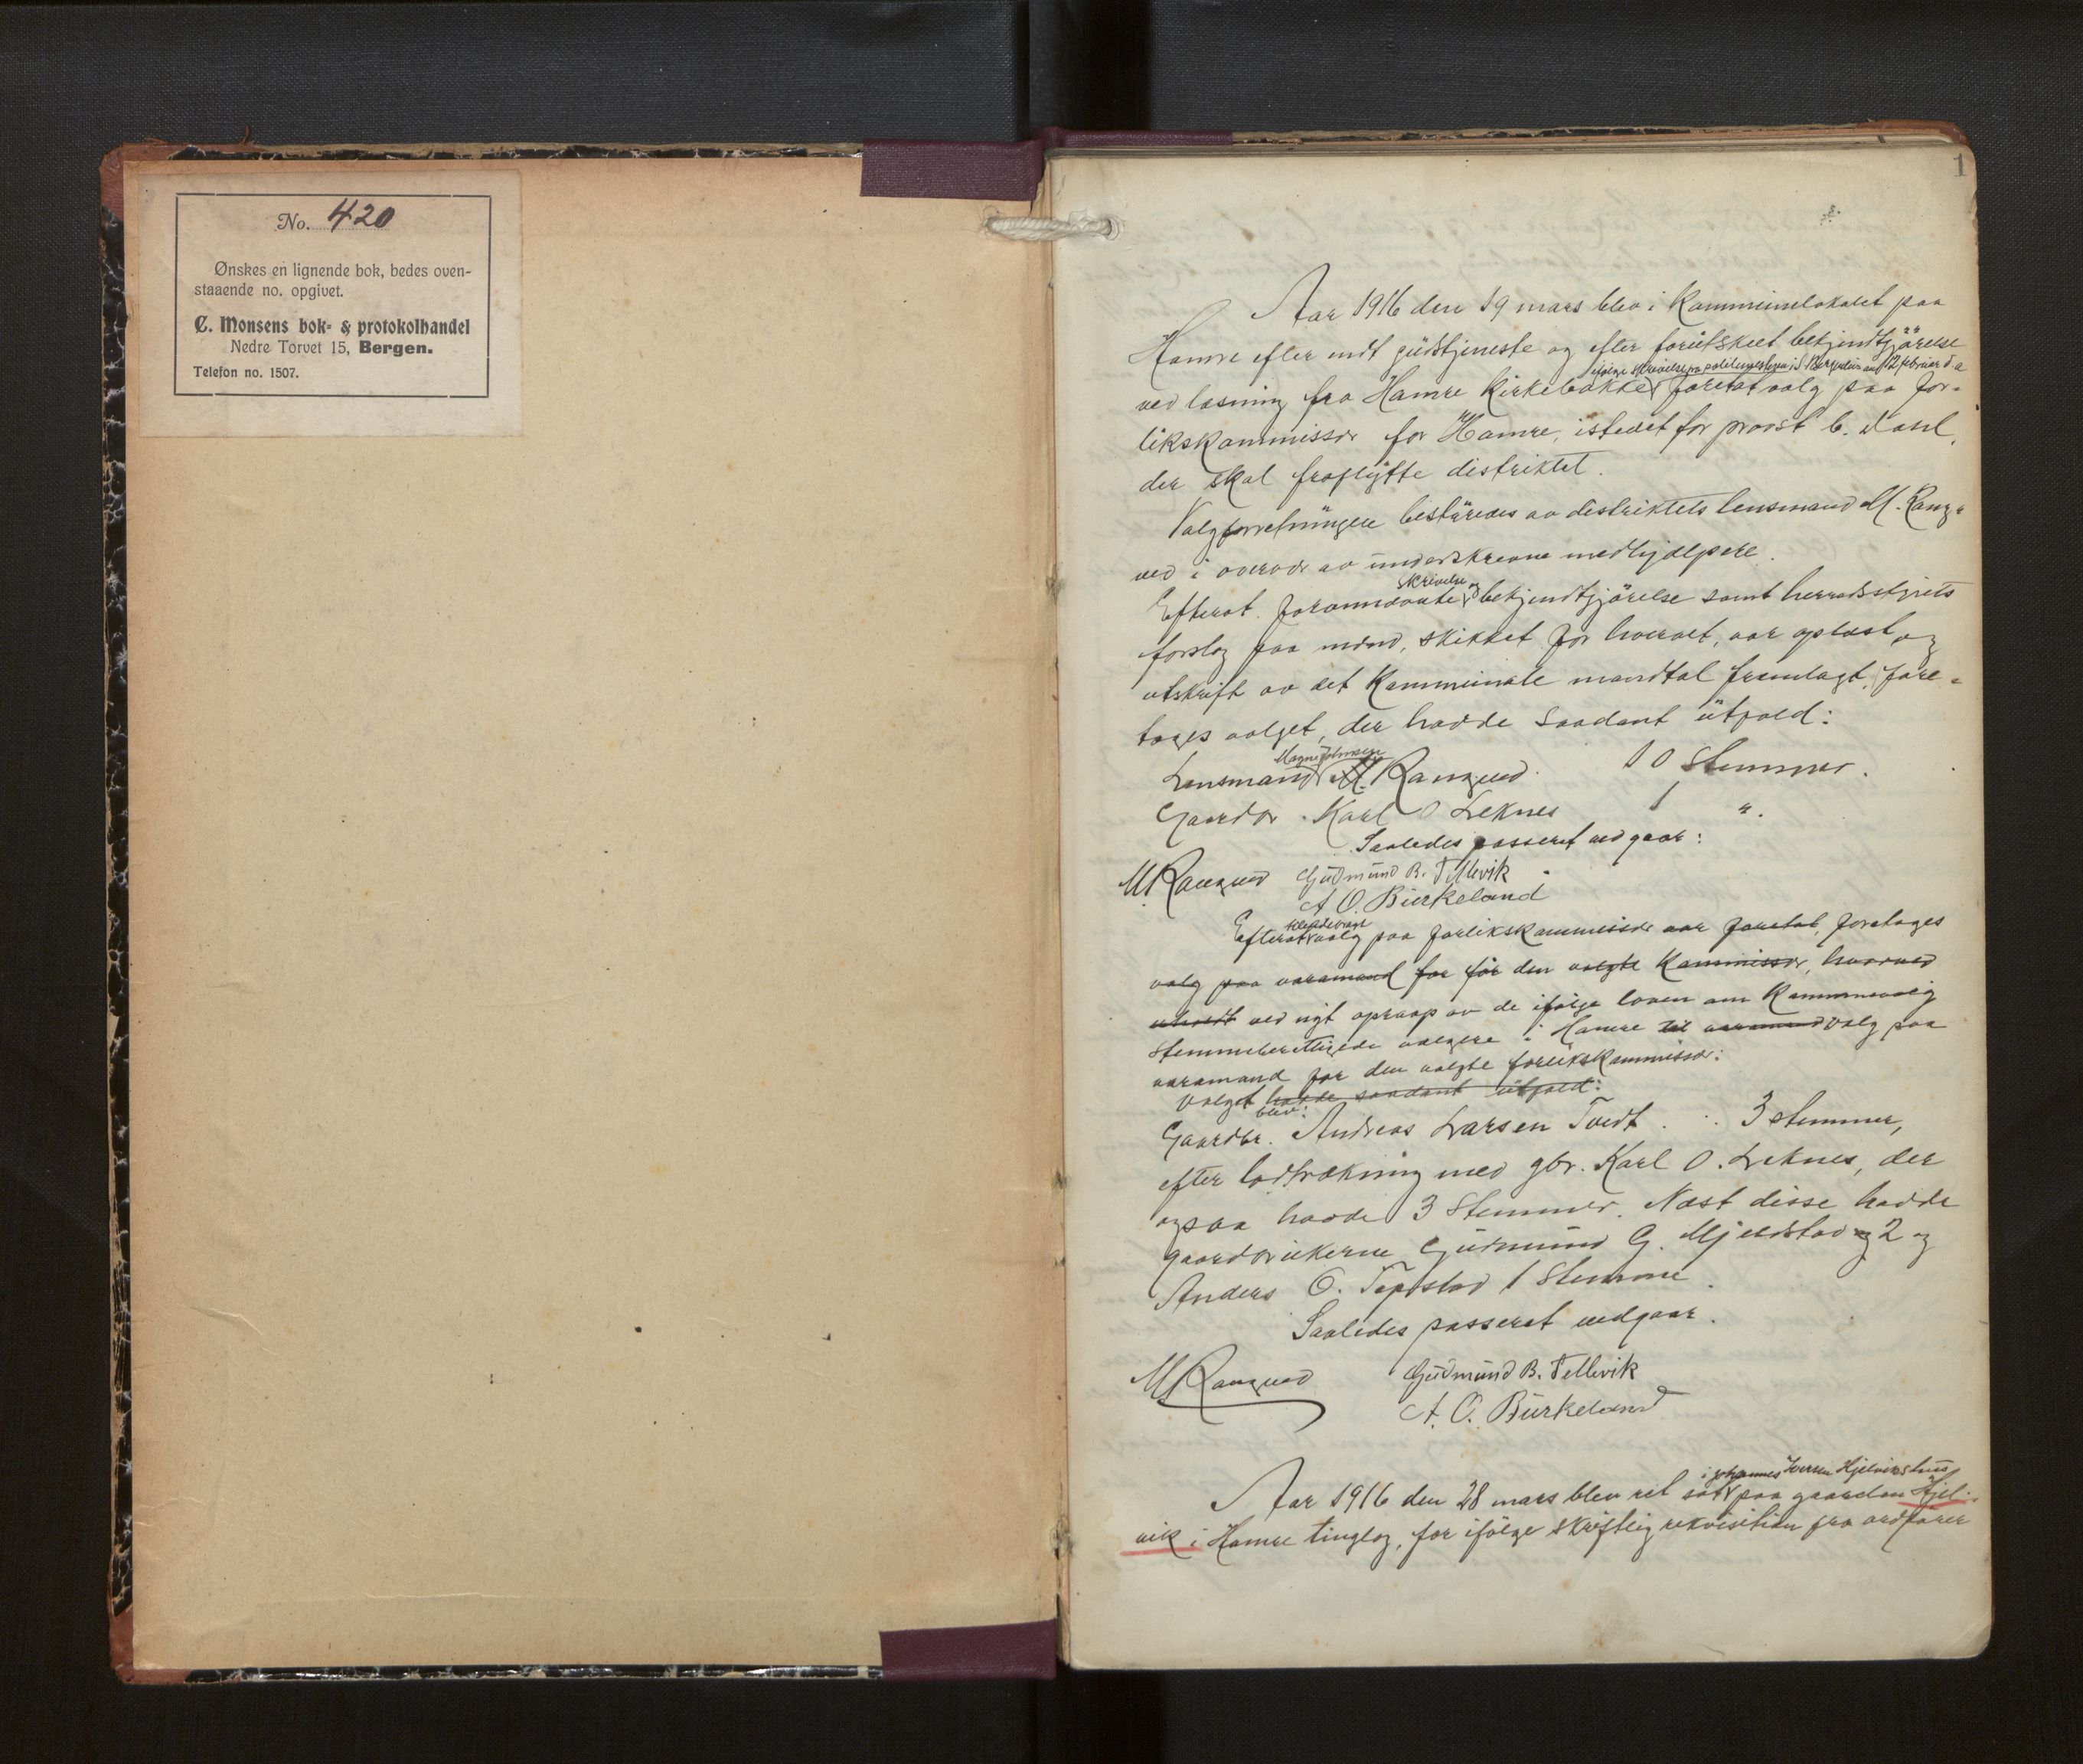 No. 420
Ønskes en lignende bok, bedes oven-
staaende no. opgivet.
C. Monsens bok- & protokolhandel
Nedre Torvet 15, Bergen.
Telefon no. 1507.
1
Aar 1916 den 19 mars blev i Kommunelokalet paa
Hamre efter endt gudstjeneste og efter forutskeet bekjendtgjörelse
ifølge skrivelse fra politimesteren i 12 februar d.a
ved læsning fra Hamre Kirkebakke foretat valg paa for-
likskommissær for Hamre, istedet for provst C.
der skal fraflytte distriktet.
Valgforretningen bestyredes av distriktets lensmand M. Rang-
ved i overvær av underskrevne medhjælpere.
skrivelse og
Efterat forannævnte bekjendtgjörelse samt herredsstyrets
forslag paa mænd, skikket for hvervet, var oplæst og
utskrift av det Kommunale mandtal fremlagt, fore-
tages valget, der hadde saadant utfald:
Magne Johnsen
Lensmand M. Rangved. 10 Stemmer.
Gaardbr. Karl O Leknes 1 ".
Saaledes passeret vedgaar:
M Rangved Gudmund B. Tellevik
A O. Burkeland
Efterat valg paa forlikskommissær var foretat, foretages
valg paa varamand for for den valgte Kommissær, hvorved
ved nyt oprop av de ifølge loven om Kommunevalg
stemmeberettigede vælgere i Hamre til varamand valg paa
varamand for den valgte forlikskommissær:
Valget hadde saadant utfald:
blev:
Gaardbr. Andreas Larsen Tvedt . . 3 stemmer,
efter lodtrækning med gbr. Karl O. Leknes, der
ogsaa havde 3 Stemmer. Næst disse hadde
gaardbrukerne Gudmund G. Mjeldstad og 2 og
Anders O. Tepstad 1 Stemme.
Saaledes passeret vedgaar.
M Rangved Gudmund B. Tellevik
A. O. Burkeland
i Johannes Iversen Hjelviks hus
Aar 1916 den 28 mars blev ret sat paa gaarden Hjel-
vik i Hamre tinglag, for ifölge skriftlig rekvisition fra ordförer